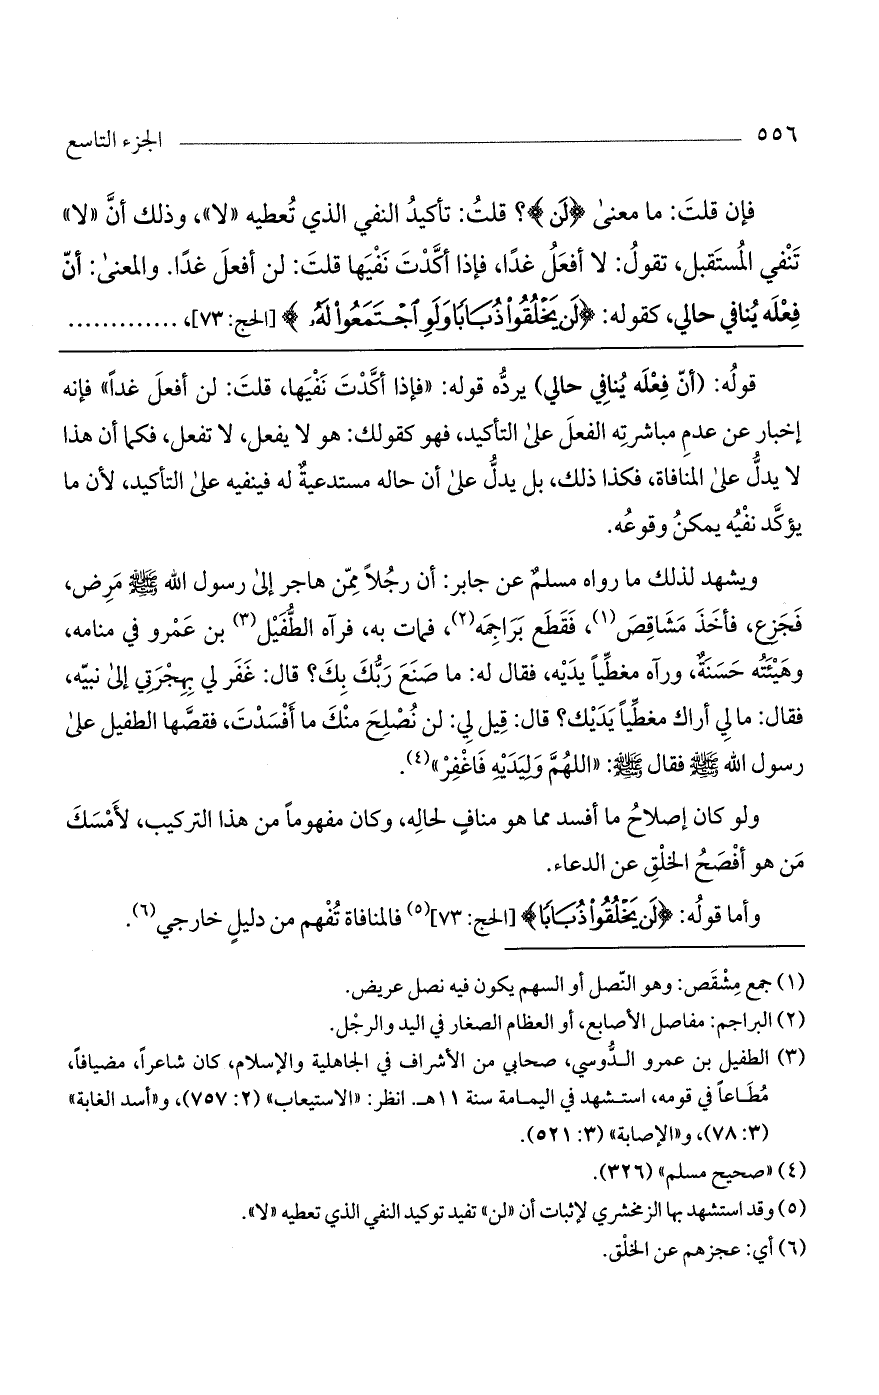 ٥٥٦ الجزء التاسع
فإن قلتَ: ما معنىٰ ﴿لَن﴾؟ قلتُ: تأكيدُ النفي الذي تُعطيه «لا»، وذلك أنَّ «لا»
تَنْفي المُستَقبل، تقولُ: لا أفعَلُ غدًا، فإذا أكَّدْتَ نَفْيَها قلتَ: لن أفعلَ غدًا. والمعنىٰ: أنّ
فِعْلَه يُنافي حالي، كقوله: ﴿لَن يَخْلُقُواْ ذُبَابًا وَلَوِ ٱجْتَمَعُواْ لَهُۥ﴾ [الحج: ٧٣]، .............
قولُه: (أنّ فِعْلَه يُنافِي حالي) يردُّه قوله: «فإذا أكَّدْتَ نَفْيَها، قلتَ: لن أفعلَ غداً» فإنه
إخبار عن عدمِ مباشرتِه الفعلَ علىٰ التأكيد، فهو كقولك: هو لا يفعل، لا تفعل، فكما أن هذا
لا يدلُّ علىٰ المنافاة، فكذا ذلك، بل يدلُّ علىٰ أن حاله مستدعيةٌ له فينفيه علىٰ التأكيد، لأن ما
يؤكَّد نفْيُه يمكنُ وقوعُه.
ويشهد لذلك ما رواه مسلمٌ عن جابر: أن رجُلاً ممّن هاجر إلىٰ رسول الله ﷺ مَرِض،
فَجَزِع، فأخَذَ مَشَاقِصَ(١)، فَقَطَع بَرَاجِمَه(٢)، فمات به، فرآه الطُّفَيْل(٣) بن عَمْرو في منامه،
وهَيْئَتُه حَسَنَةٌ، ورآه مغطِّياً يدَيْه، فقال له: ما صَنَعَ رَبُّكَ بِكَ؟ قال: غَفَر لي بِهِجْرَتِي إلىٰ نبيّه،
فقال: ما لِي أراك مغطِّياً يَدَيْك؟ قال: قِيل لِي: لن نُصْلِحَ منْكَ ما أَفْسَدْتَ، فقصَّها الطفيل علىٰ
رسول الله ﷺ فقال ﷺ: «اللهُمَّ وَلِيَدَيْهِ فَاغْفِرْ»(٤).
ولو كان إصلاحُ ما أفسد مما هو منافٍ لحالِه، وكان مفهوماً من هذا التركيب، لأَمْسَكَ
مَن هو أفْصَحُ الخلْقِ عن الدعاء.
وأما قولُه: ﴿لَن يَخْلُقُواْ ذُبَابًا﴾ [الحج: ٧٣](٥) فالمنافاة تُفْهم من دليلٍ خارجي(٦).
(١) جمع مِشْقَص: وهو النّصل أو السهم يكون فيه نصل عريض.
(٢) البراجم: مفاصل الأصابع، أو العظام الصغار في اليد والرجْل.
(٣) الطفيل بن عمرو الدُّوسي، صحابي من الأشراف في الجاهلية والإسلام، كان شاعراً، مضيافاً،
مُطَاعاً في قومه، استشهد في اليمامة سنة ١١هـ. انظر: «الاستيعاب» (٢: ٧٥٧)، و«أسد الغابة»
(٣: ٧٨)، و«الإصابة» (٣: ٥٢١).
(٤) «صحيح مسلم» (٣٢٦).
(٥) وقد استشهد بها الزمخشري لإثبات أن «لن» تفيد توكيد النفي الذي تعطيه «لا».
(٦) أي: عجزهم عن الخلْق.